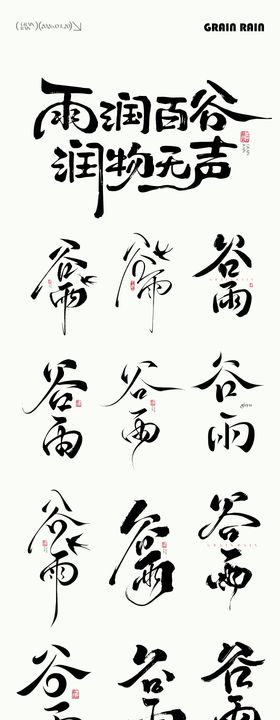 GRAIN RAIN
雨润百谷
润物无声
谷雨
谷雨
谷雨
谷雨
谷雨
谷雨
谷雨
谷雨
谷雨
谷
谷
谷